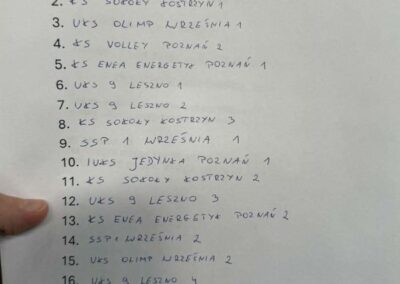 2. KS SOKOŁY KOSTRZYN 1
3. UKS OLIMP WRZEŚNIA 1
4. KS VOLLEY POZNAŃ 2
5. KS ENEA ENERGETYK POZNAŃ 1
6. UKS 9 LESZNO 1
7. UKS 9 LESZNO 2
8. KS SOKOŁY KOSTRZYN 3
9. SSP 1 WRZEŚNIA 1
10. IUKS JEDYNKA POZNAŃ 1
11. KS SOKOŁY KOSTRZYN 2
12. UKS 9 LESZNO 3
13. KS ENEA ENERGETYK POZNAŃ 2
14. SSP1 WRZEŚNIA 2
15. UKS OLIMP WRZEŚNIA 2
16. UKS 9 LESZNO 4